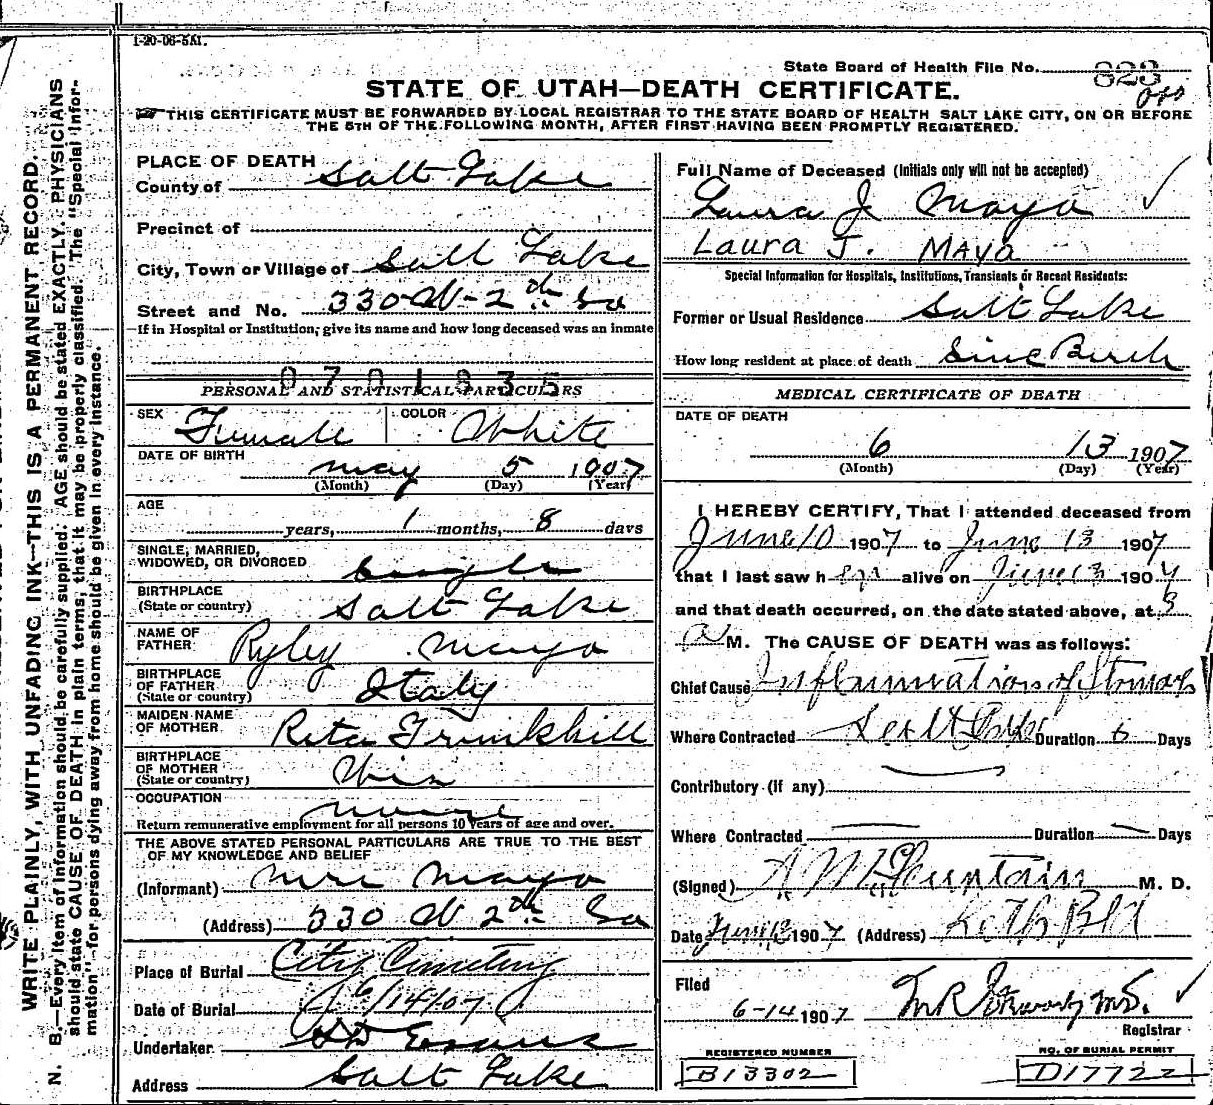 1-20-06-5M.
State Board of Health File No. 823
STATE OF UTAH—DEATH CERTIFICATE.
THIS CERTIFICATE MUST BE FORWARDED BY LOCAL REGISTRAR TO THE STATE BOARD OF HEALTH SALT LAKE CITY, ON OR BEFORE
THE 5TH OF THE FOLLOWING MONTH, AFTER FIRST HAVING BEEN PROMPTLY REGISTERED.
WRITE PLAINLY, WITH UNFADING INK—THIS IS A PERMANENT RECORD.
N. B.—Every item of information should be carefully supplied. AGE should be stated EXACTLY. PHYSICIANS
should state CAUSE OF DEATH in plain terms, that it may be properly classified. The "Special Infor-
mation" for persons dying away from home should be given in every instance.
PLACE OF DEATH
County of Salt Lake
Precinct of
City, Town or Village of Salt Lake
Street and No. 330 W-2nd So
If in Hospital or Institution, give its name and how long deceased was an inmate
0701935
PERSONAL AND STATISTICAL PARTICULARS
SEX Female COLOR White
DATE OF BIRTH
May 5 1907
(Month) (Day) (Year)
AGE
years, 1 months, 8 days
SINGLE, MARRIED,
WIDOWED, OR DIVORCED Single
BIRTHPLACE
(State or country) Salt Lake
NAME OF
FATHER Ryley Mayo
BIRTHPLACE
OF FATHER
(State or country) Italy
MAIDEN NAME
OF MOTHER Rita
BIRTHPLACE
OF MOTHER
(State or country) Wis
OCCUPATION
Return remunerative employment for all persons 10 years of age and over.
THE ABOVE STATED PERSONAL PARTICULARS ARE TRUE TO THE BEST
OF MY KNOWLEDGE AND BELIEF
(Informant) Mrs Mayo
(Address) 330 W 2nd So
Place of Burial City Cemetery
Date of Burial 6/14/07
Undertaker Evans
Address Salt Lake
Full Name of Deceased (Initials only will not be accepted)
Laura J Mayo
LAURA J. MAYO
Special Information for Hospitals, Institutions, Transients or Recent Residents:
Former or Usual Residence Salt Lake
How long resident at place of death Since Birth
MEDICAL CERTIFICATE OF DEATH
DATE OF DEATH
6 13 1907
(Month) (Day) (Year)
I HEREBY CERTIFY, That I attended deceased from
June 10 1907 to June 13 1907
that I last saw her alive on June 13 1907
and that death occurred, on the date stated above, at 3
a M. The CAUSE OF DEATH was as follows:
Chief Cause Inflammation of Stomach
Where Contracted Salt Lake Duration 6 Days
Contributory (if any)
Where Contracted Duration Days
(Signed) M. D.
Date June 13 1907 (Address)
Filed
6-14 1907
Registrar
REGISTERED NUMBER
B13302
NO. OF BURIAL PERMIT
D17722